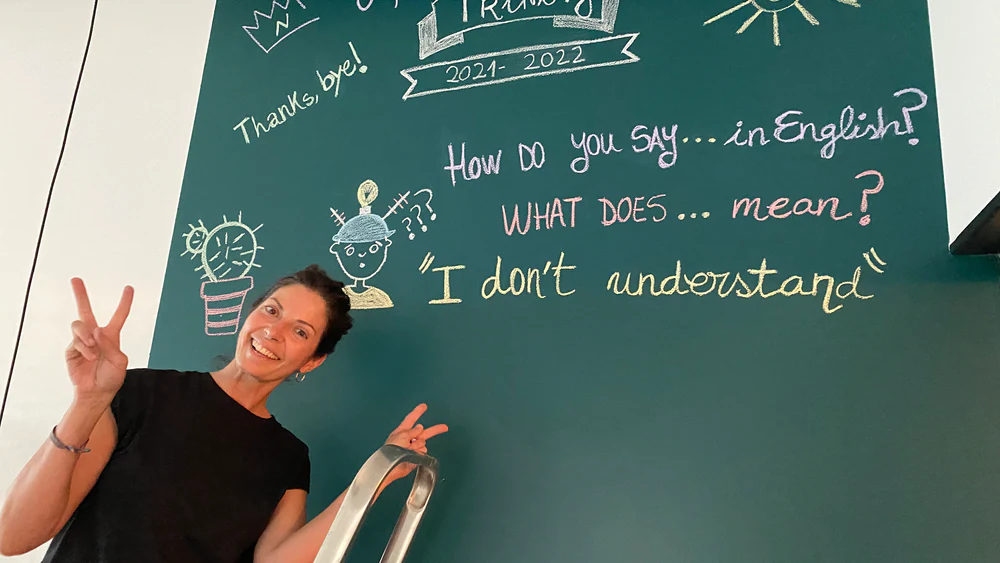 2021-2022
Thanks, bye!
How DO you SAY... in English?
WHAT DOES... mean?
???
"I don't understand"